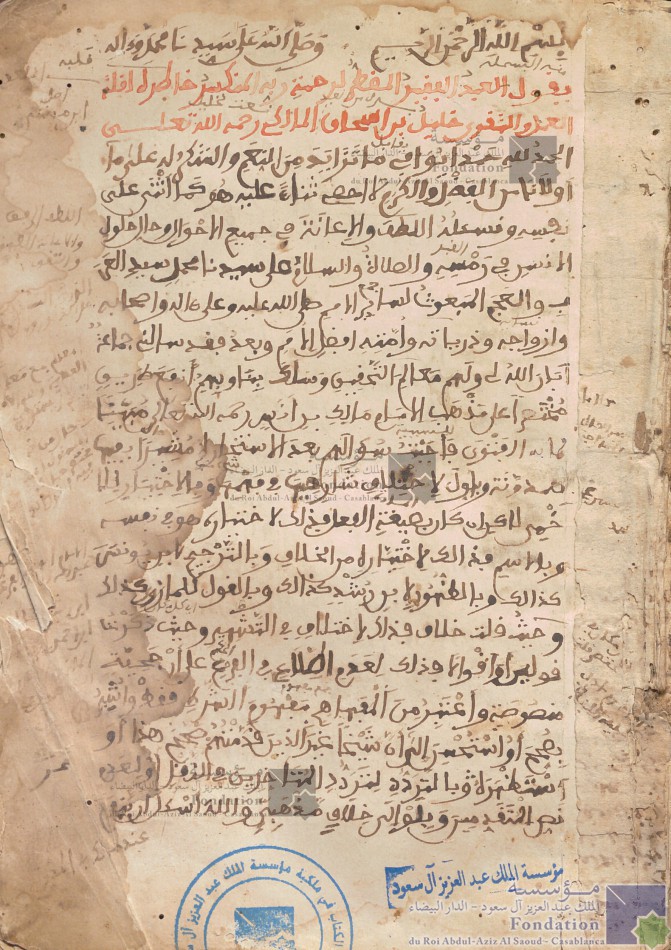 بسم الله الرحمن الرحيم وصلى الله على سيدنا محمد وءاله
يقول العبد الفقير المضطر لرحمة ربه المنكسر خاطره لقلة
العمل والتقوى خليل بن اسحاق المالكي رحمه الله تعلى
الحمد لله حمدا يوافي ما تزايد من النعم والشكر له على ما
اولانا من الفضل والكرم لا احصي ثناء عليه هو كما اثنى على
نفسه ونسئله اللطف والاعانة في جميع الاحوال وحال حلول
الانسان في رمسه والصلاة والسلام على سيدنا محمد سيد العر
ب والعجم المبعوث لسائر الامم صلى الله عليه وعلى ءاله واصحابه
وازواجه وذرياته وامته افضل الامم وبعد فقد سالني جماعة
ابان الله لي ولهم معالم التحقيق وسلك بنا وبهم انفع طريق
مختصرا على مذهب الامام مالك بن انس رحمه الله تعلى مبينا
لما به الفتوى فاجبت سؤالهم بعد الاستخارة مشيرا بفيها
للمدونة وباول لاختلاف شارحيها في فهمها وبالاختيار للـ
خمي لاكن ان كان بصيغة الفعل فذالك لاختياره هو في نفسه
وبالاسم فذالك لاختياره من الخلاف وبالترجيح لابن يونس
كذالك وبالظهور لابن رشد كذالك وبالقول للمازري كذالك
وحيث قلت خلاف فذالك لاختلاف في التشهير وحيث ذكرت
قولين او اقوالا فذلك لعدم اطلاعي في الفرع على ارجحية
منصوصة واعتبر من المفاهيم مفهوم الشرط فقط واشير
بصحح او استحسن الى ان شيخا غير الذين قدمتهم صحح هذا او
استظهره وبالتردد لتردد المتاخرين في النقل او لعدم
نص المتقدمين وبلو الى خلاف مذهبي والله اسئل ان ينفع
مؤسسة الملك عبد العزيز آل سعود
الكتاب في ملكية مؤسسة الملك عبد العزيز آل
مؤسسة
الملك عبد العزيز آل سعود - الدار البيضاء
Fondation
du Roi Abdul-Aziz Al Saoud - Casablanca